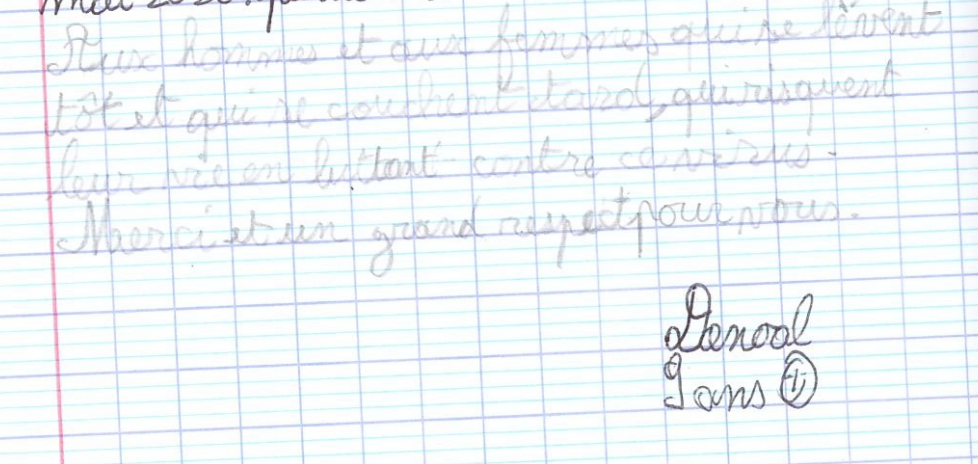 mai 2020.
Aux hommes et aux femmes qui se lèvent
tôt et qui se couchent tard, qui risquent
leur vie en luttant contre ce virus.
Merci et un grand respect pour vous.
9 ans